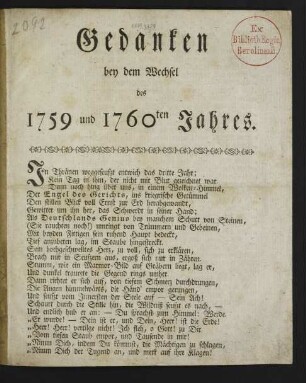 2092
Ex
Biblioth. Regia
Berolinensi.
Gedanken
bey dem Wechsel
des
1759 und 1760ten Jahres.
In Thränen weggeseufzt entwich das dritte Jahr;
Kein Tag in ihm, der nicht mit Blut gezeichnet war
Dann noch hing über uns, in einem Wolken-Himmel,
Der Engel des Gerichts, ins kriegrische Getümmel
Den stillen Blick voll Ernst zur Erd herabgewandt,
Gewitter um ihn her, das Schwerdt in seiner Hand;
Als Deutschlands Genius bey manchem Schutt von Steinen,
(Sie rauchten noch!) umringt von Trümmern und Gebeinen,
Mit beyden Fittigen sein traurend Haupt bedeckt,
Tief anbetend lag, im Staube hingestreckt.
Sein hochgeschwelltes Herz, zu voll, sich zu erklären,
Brach nur in Seufzern aus, ergoß sich nur in Zähren.
Stumm, wie ein Marmor-Bild auf Gräbern liegt, lag er,
Und dunkel traurete die Gegend rings umher
Dann richtet er sich auf, von tiefem Schmerz durchdrungen,
Die Augen himmelwärts, die Händ empor gerungen,
Und seufzt von Innersten der Seele auf — Sein Ach!
Schauert durch die Stille hin, die Wildniß seufzt es nach, —
Und endlich hub er an: — Du sprachst zum Himmel: Werde
„Er wurde! — Dein ist er, und Dein, Herr! ist die Erde!
„Herr! Herr! vertilge nicht! Ich fleh, o Gott! zu Dir
„Vom tiefen Staub empor, und Tausende in mir!
„Nimm Dich, indem Du kömmst, die Mächtigen zu schlagen,
„Nimm Dich der Tugend an, und merk auf ihre Klagen!